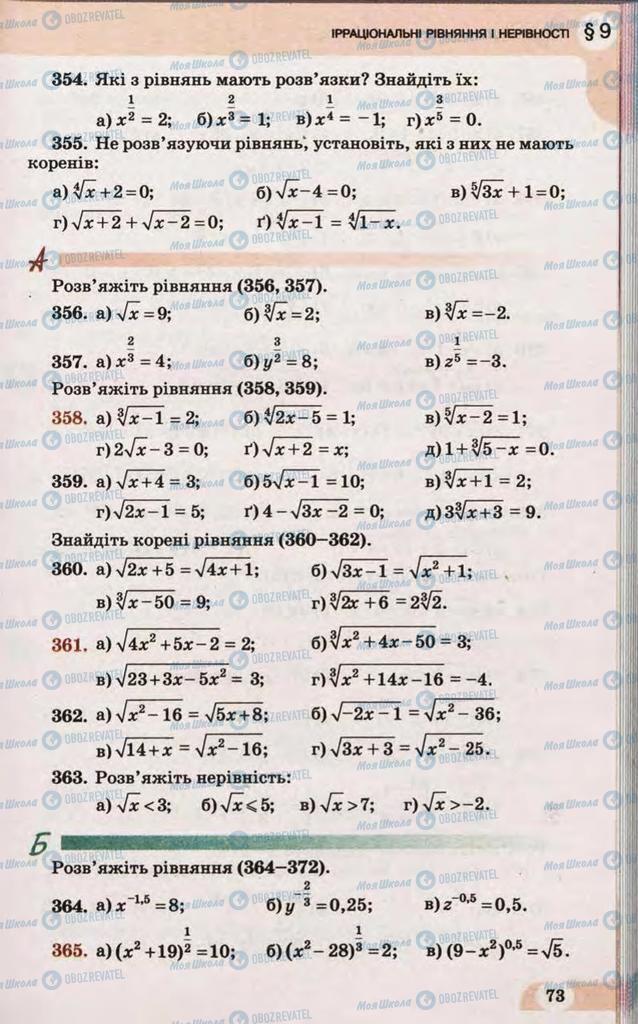 ІРРАЦІОНАЛЬНІ РІВНЯННЯ І НЕРІВНОСТІ § 9
354. Які з рівнянь мають розв’язки? Знайдіть їх:
а) x^{1/2} = 2; б) x^{2/3} = 1; в) x^{1/4} = −1; г) x^{3/5} = 0.
355. Не розв’язуючи рівнянь, установіть, які з них не мають
коренів:
а) ⁴√x + 2 = 0; б) √x − 4 = 0; в) ⁵√(3x) + 1 = 0;
г) √(x + 2) + √(x − 2) = 0; ґ) ⁴√(x − 1) = ⁴√(1 − x).
А
Розв’яжіть рівняння (356, 357).
356. а) √x = 9; б) ³√x = 2; в) ³√x = −2.
357. а) x^{2/3} = 4; б) y^{3/2} = 8; в) z^{1/5} = −3.
Розв’яжіть рівняння (358, 359).
358. а) ³√(x − 1) = 2; б) ⁴√(2x − 5) = 1; в) ⁵√(x − 2) = 1;
г) 2√x − 3 = 0; ґ) √(x + 2) = x; д) 1 + ³√(5 − x) = 0.
359. а) √(x + 4) = 3; б) 5√(x − 1) = 10; в) ³√(x + 1) = 2;
г) √(2x − 1) = 5; ґ) 4 − √(3x − 2) = 0; д) 3³√(x + 3) = 9.
Знайдіть корені рівняння (360—362).
360. а) √(2x + 5) = √(4x + 1); б) √(3x − 1) = √(x² + 1);
в) ³√(x − 50) = 9; г) ³√(2x + 6) = 2³√2.
361. а) √(4x² + 5x − 2) = 2; б) ³√(x² + 4x − 50) = 3;
в) √(23 + 3x − 5x²) = 3; г) ³√(x² + 14x − 16) = −4.
362. а) √(x² − 16) = √(5x + 8); б) √(−2x − 1) = √(x² − 36;)
в) √(14 + x) = √(x² − 16); г) √(3x + 3) = √(x² − 25).
363. Розв’яжіть нерівність:
а) √x < 3; б) √x ⩽ 5; в) √x > 7; г) √x > −2.
Б
Розв’яжіть рівняння (364—372).
364. а) x^{−1,5} = 8; б) y^{−2/3} = 0,25; в) z^{−0,5} = 0,5.
365. а) (x² + 19)^{1/2} = 10; б) (x² − 28)^{1/3} = 2; в) (9 − x²)^{0,5} = √5.
73
Моя Школа OBOZREVATEL